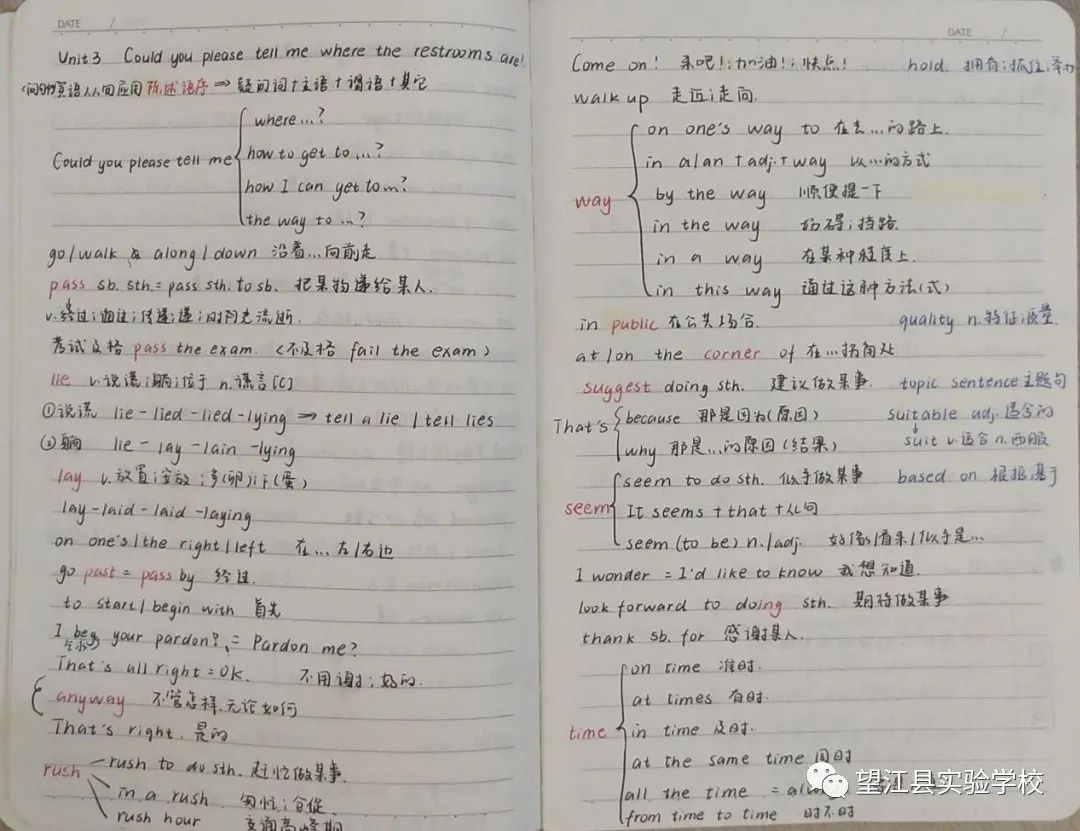 DATE /
Unit 3 Could you please tell me where the restrooms are!
英语从句应用陈述语序 ⇒ 疑问词+主语+谓语+其它
Could you please tell me
where...?
how to get to ...?
how I can get to ...?
the way to ...?
go/walk along/down 沿着...向前走
pass sb. sth. = pass sth. to sb. 把某物递给某人.
v.经过;通过;传递;递;时间流逝.
考试及格 pass the exam. (不及格 fail the exam)
lie v.说谎;躺;位于 n.谎言[C]
①说谎 lie-lied-lied-lying ⇒ tell a lie / tell lies
②躺 lie-lay-lain-lying
lay v.放置;安放;产(卵);下(蛋)
lay-laid-laid-laying
on one's/the right/left 在...左/右边
go past = pass by 经过.
to start/begin with 首先
I beg your pardon? = Pardon me?
That's all right = Ok. 不用谢;好的.
anyway 不管怎样,无论如何
That's right. 是的
rush
rush to do sth. 赶忙做某事.
in a rush 匆忙;仓促
rush hour 交通高峰期
DATE /
Come on! 来吧!;加油!;快点! hold 拥有;抓住;
walk up 走近;走向.
way
on one's way to 在去...的路上.
in a/an+adj.+way 以...的方式
by the way 顺便提一下
in the way 妨碍;挡路.
in a way 在某种程度上.
in this way 通过这种方法(式)
in public 在公共场合. quality n.特征;质量.
at/on the corner of 在...拐角处
suggest doing sth. 建议做某事. topic sentence 主题句
That's
because 那是因为(原因) suitable adj.适合的
why 那是...的原因(结果) suit v.适合 n.西服
seem
seem to do sth. 似乎做某事 based on 根据;基于
It seems + that +从句
seem (to be) n./adj. 好像/看来/似乎是...
I wonder = I'd like to know 我想知道.
look forward to doing sth. 期待做某事
thank sb. for 感谢某人.
time
on time 准时.
at times 有时.
in time 及时.
at the same time 同时
all the time =
from time to time 时不时
望江县实验学校